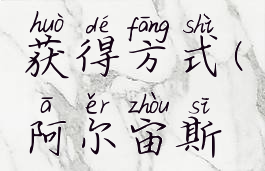 huò dé fāng shì
获得方式(
ā ěr zhòu sī
阿尔宙斯